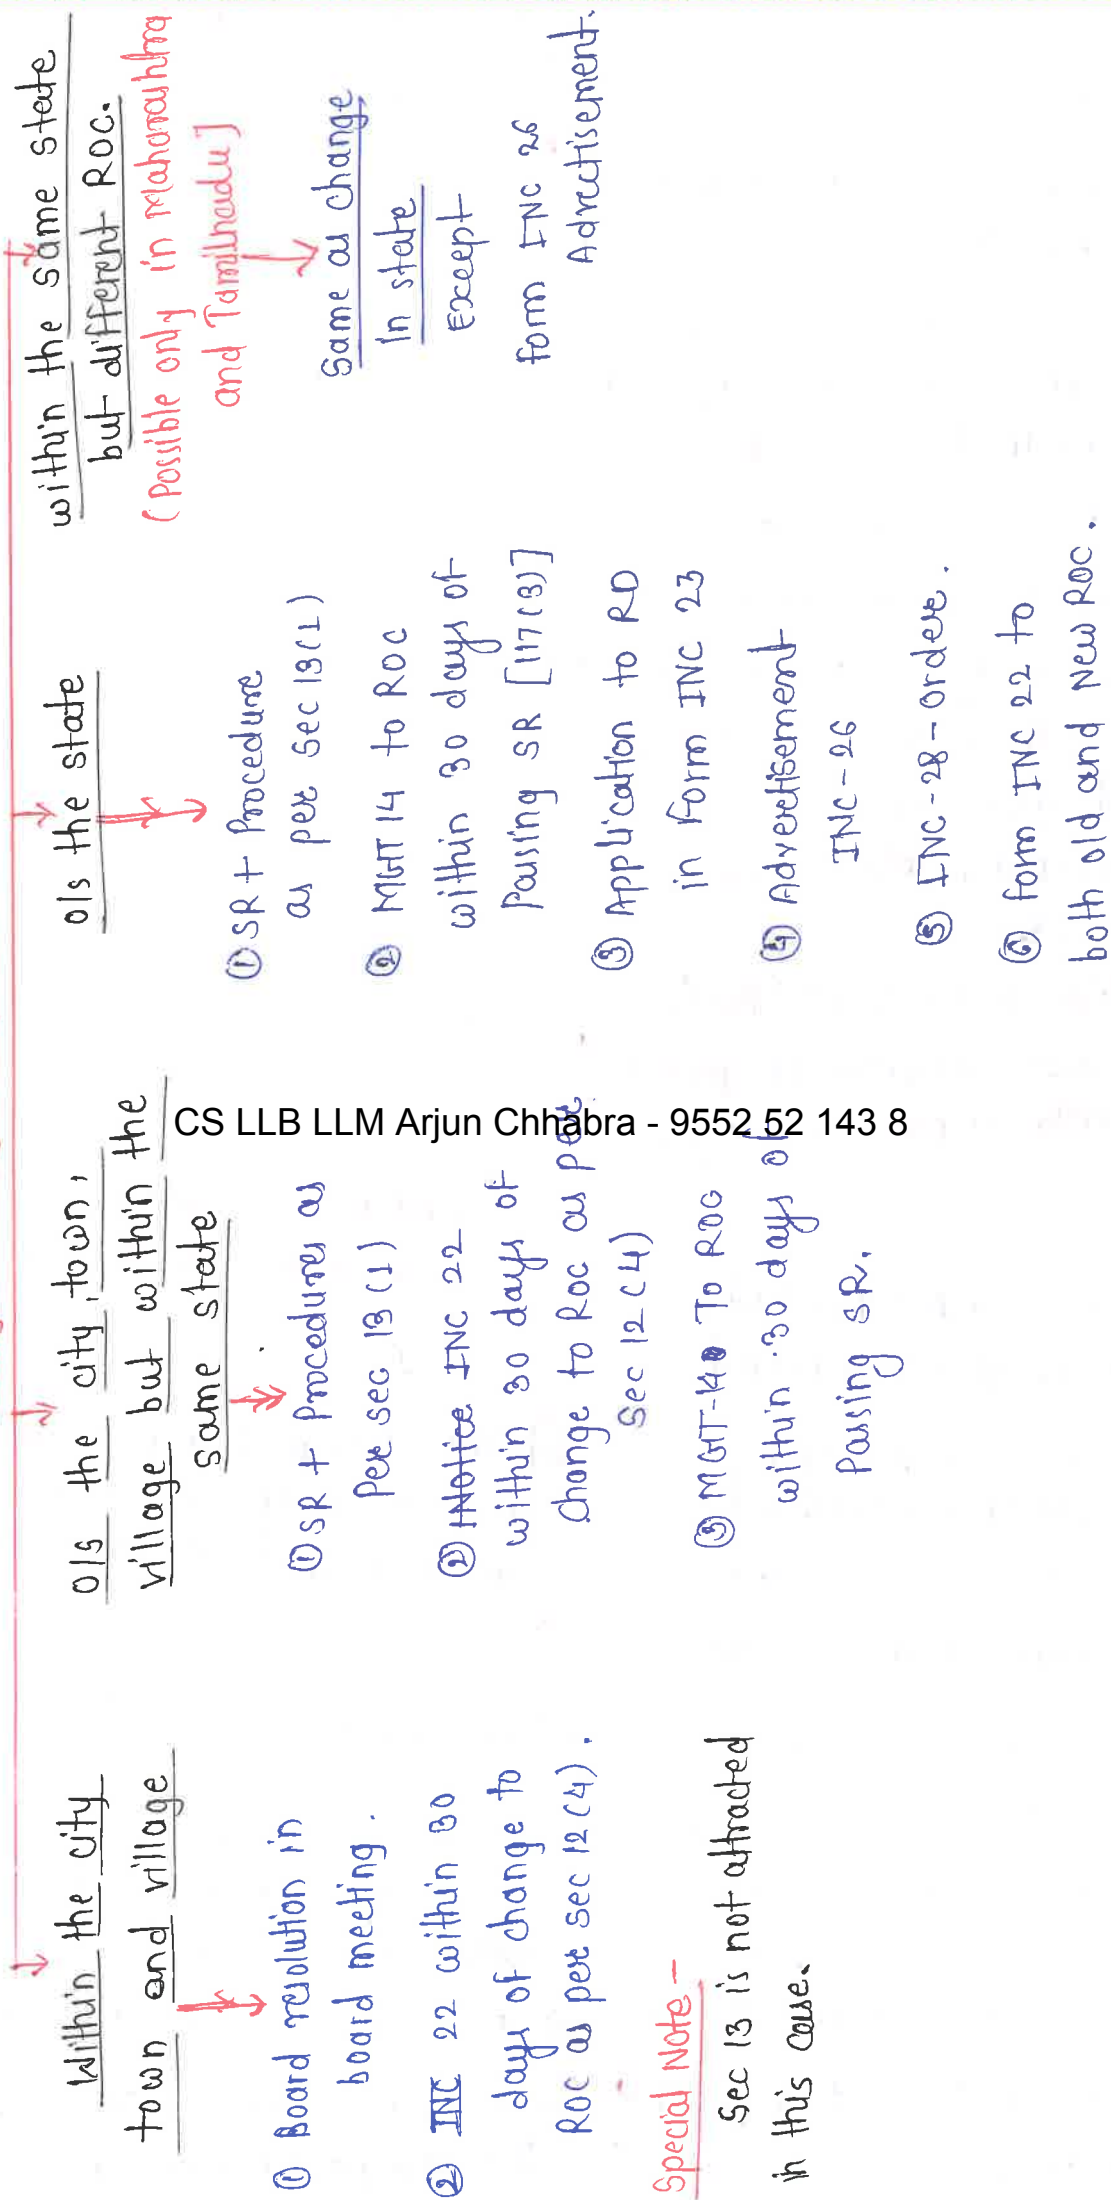 Within the city
town and village
① Board resolution in
board meeting.
② INC 22 within 30
days of change to
ROC as per sec 12 (4).
Special Note -
Sec 13 is not attracted
in this case.
o/s the city, town,
village but within the
same state
① SR + Procedures as
Per sec 13 (1)
② Notice INC 22
within 30 days of
change to ROC as per
Sec 12 (4)
③ MGT-14 To ROC
within 30 days of
Passing SR.
o/s the state
① SR + Procedure
as per sec 13 (1)
② MGT 14 to ROC
within 30 days of
Passing SR [117(3)]
③ Application to RD
in Form INC 23
④ Advertisement
INC-26
⑤ INC-28-order.
⑥ form INC 22 to
both old and New ROC.
within the same state
but different ROC.
(Possible only in Maharashtra
and Tamilnadu]
Same as change
In state
Except
form INC 26
Advectisement.
CS LLB LLM Arjun Chhabra - 9552 52 143 8